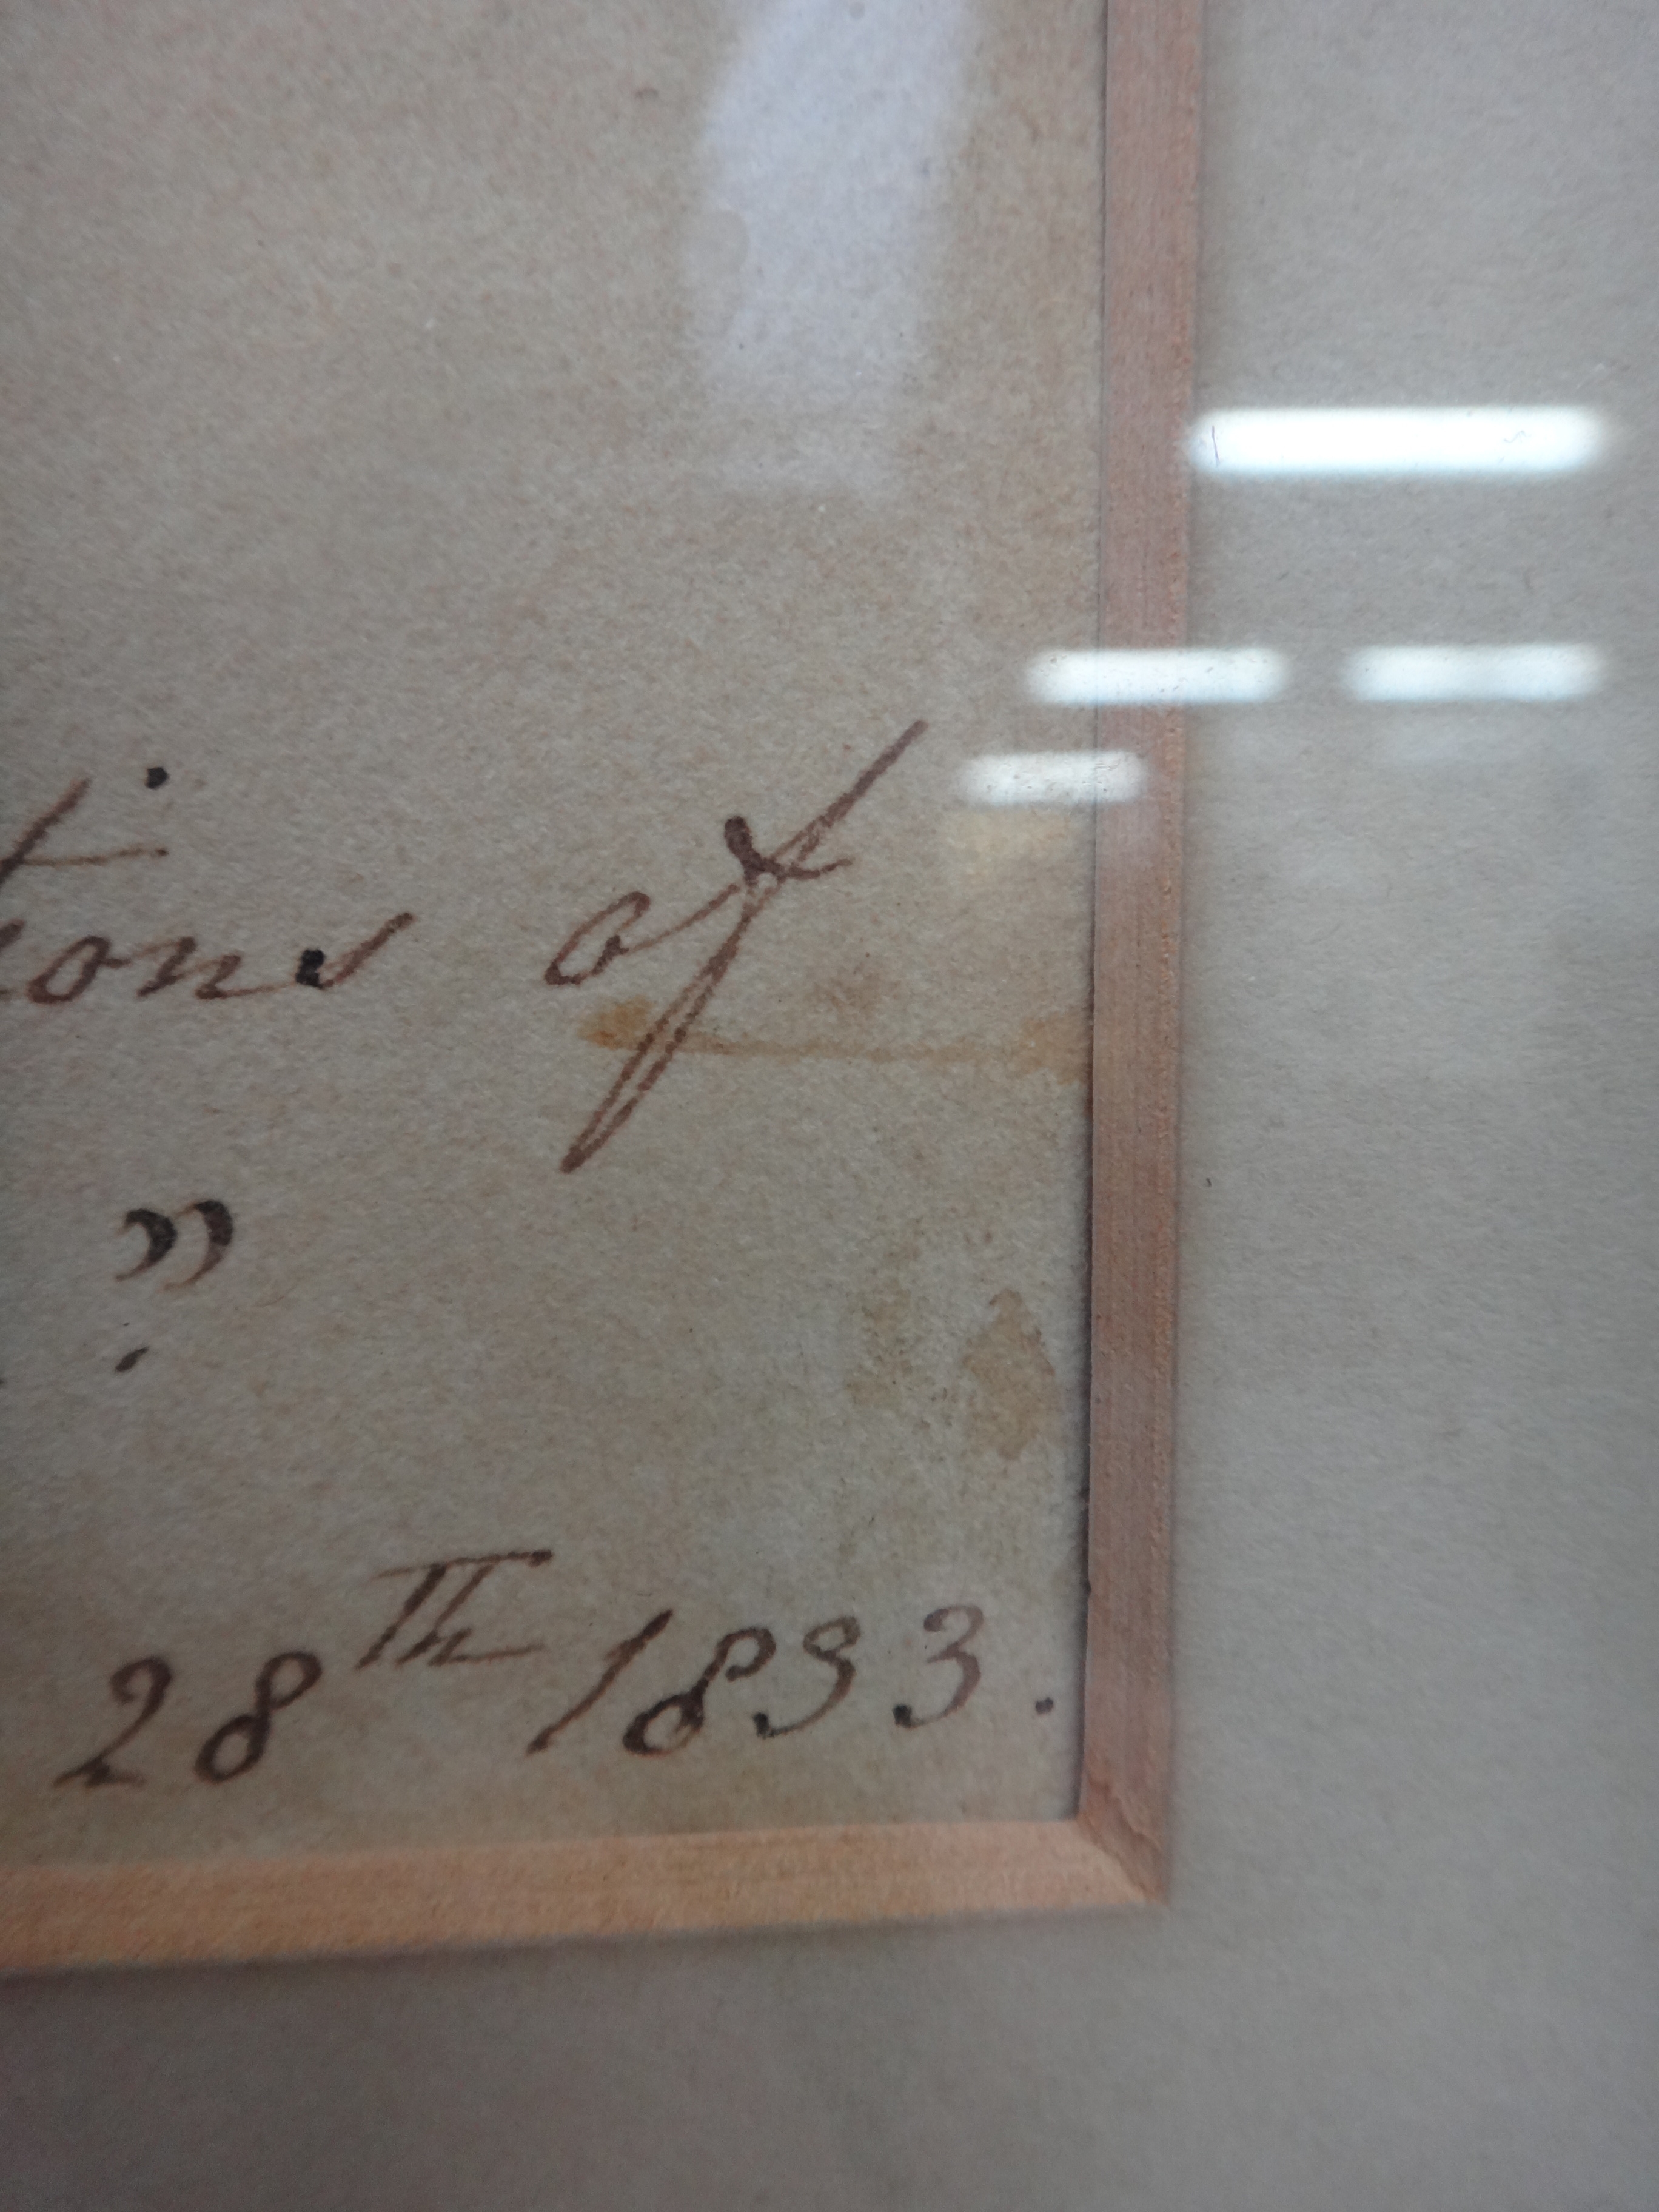 tions of
"
28Th 1833.